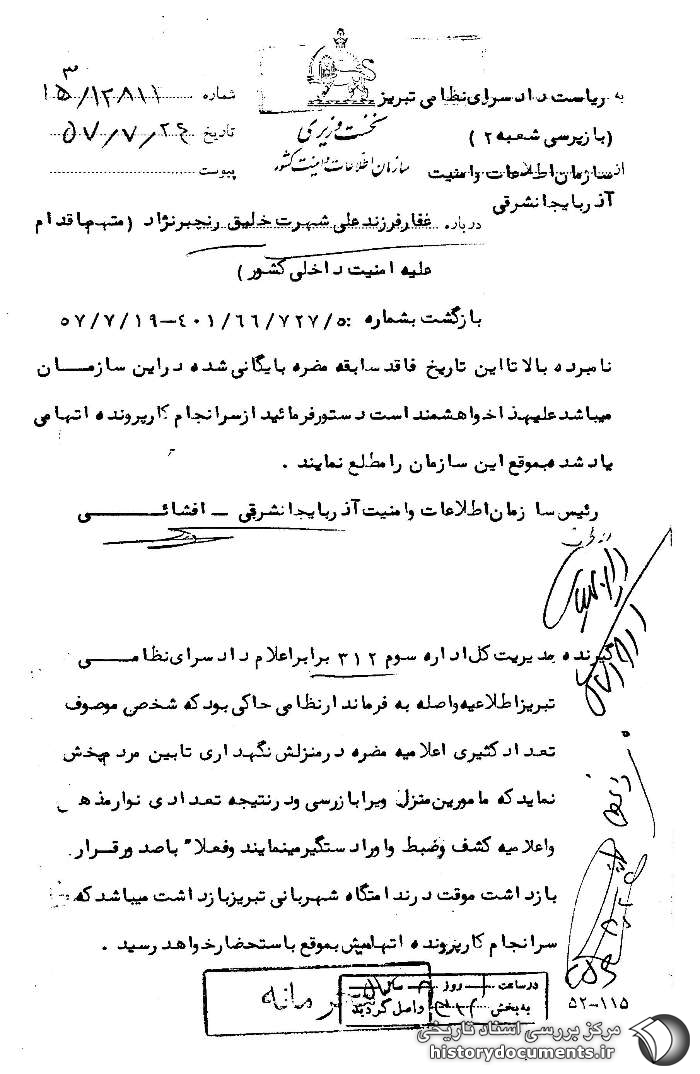 به ریاست دادسرای نظامی تبریز
(بازپرسی شعبه ۲)
از سازمان اطلاعات وامنیت
آذربایجانشرقی
نخست وزیری
سازمان اطلاعات و امنیت کشور
شماره ۱۲۸۱۱/۱۵ ۳
تاریخ ۵۷/۷/۲۶
پیوست
درباره غفار فرزند علی شهرت خلیق رنجبرنژاد (متهم باقدام
علیه امنیت داخلی کشور)
بازگشت بشماره ۵: /۴۰۱/۶۶/۷۲۷–۵۷/۷/۱۹
نامبرده بالا تا این تاریخ فاقد سابقه مضره بایگانی شده در این سازمان
میباشد علیهذا خواهشمند است دستور فرمائید از سرانجام کار پرونده اتهامی
یاد شده بموقع این سازمان را مطلع نمایند .
رئیس سازمان اطلاعات وامنیت آذربایجانشرقی – افشائی
گیرنده مدیریت کل اداره سوم ۳۱۲ برابر اعلام دادسرای نظامی
تبریز اطلاعیه واصله به فرماندار نظامی حاکی بود که شخص موصوف
تعداد کثیری اعلامیه مضره در منزلش نگهداری تا بین مردم پخش
نماید که مامورین منزل ویرا بازرسی و در نتیجه تعدادی نوار مذهبی
واعلامیه کشف وضبط و او را دستگیر مینمایند وفعلا" با صدور قرار
بازداشت موقت در ندامتگاه شهربانی تبریز بازداشت میباشد که
سرانجام کار پرونده اتهامیش بموقع باستحضار خواهد رسید .
محرمانه
در ساعت روز
به بخش ۳۱۲ واصل گردید
۵۲–۱۱۵
مرکز بررسی اسناد تاریخی
historydocuments.ir